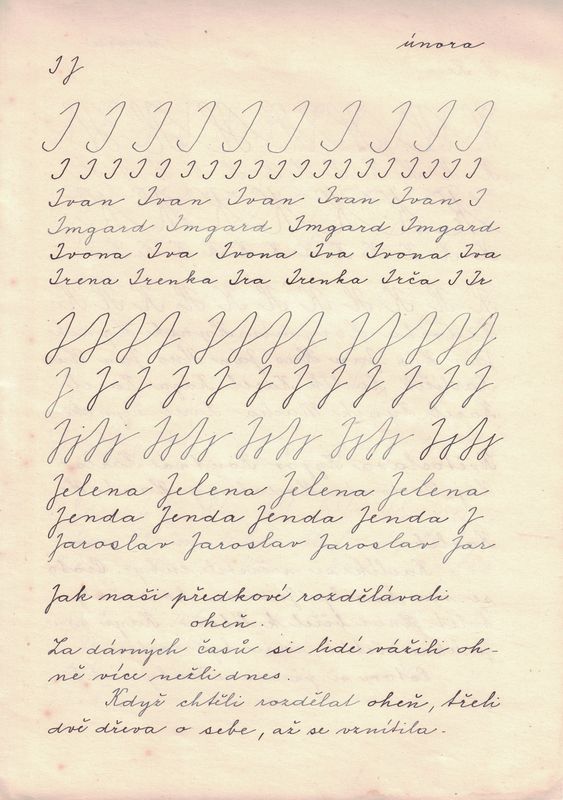 února
I J
I I I I I I I I I I
I I I I I I I I I I I I I I I I I I
Ivan Ivan Ivan Ivan Ivan I
Imgard Imgard Imgard Imgard
Ivona Iva Ivona Iva Ivona Iva
Irena Irenka Ira Irenka Irča I Ir
J J J J J J J J J J J J
J J J J J J J J J J
Jjjj Jjjj Jjjj Jjjj Jjjj
Jelena Jelena Jelena Jelena
Jenda Jenda Jenda Jenda J
Jaroslav Jaroslav Jaroslav Jar
Jak naši předkové rozdělávali
oheň.
Za dávných časů si lidé vážili oh-
ně více nežli dnes.
Když chtěli rozdělat oheň, třeli
dvě dřeva o sebe, až se vznítila.